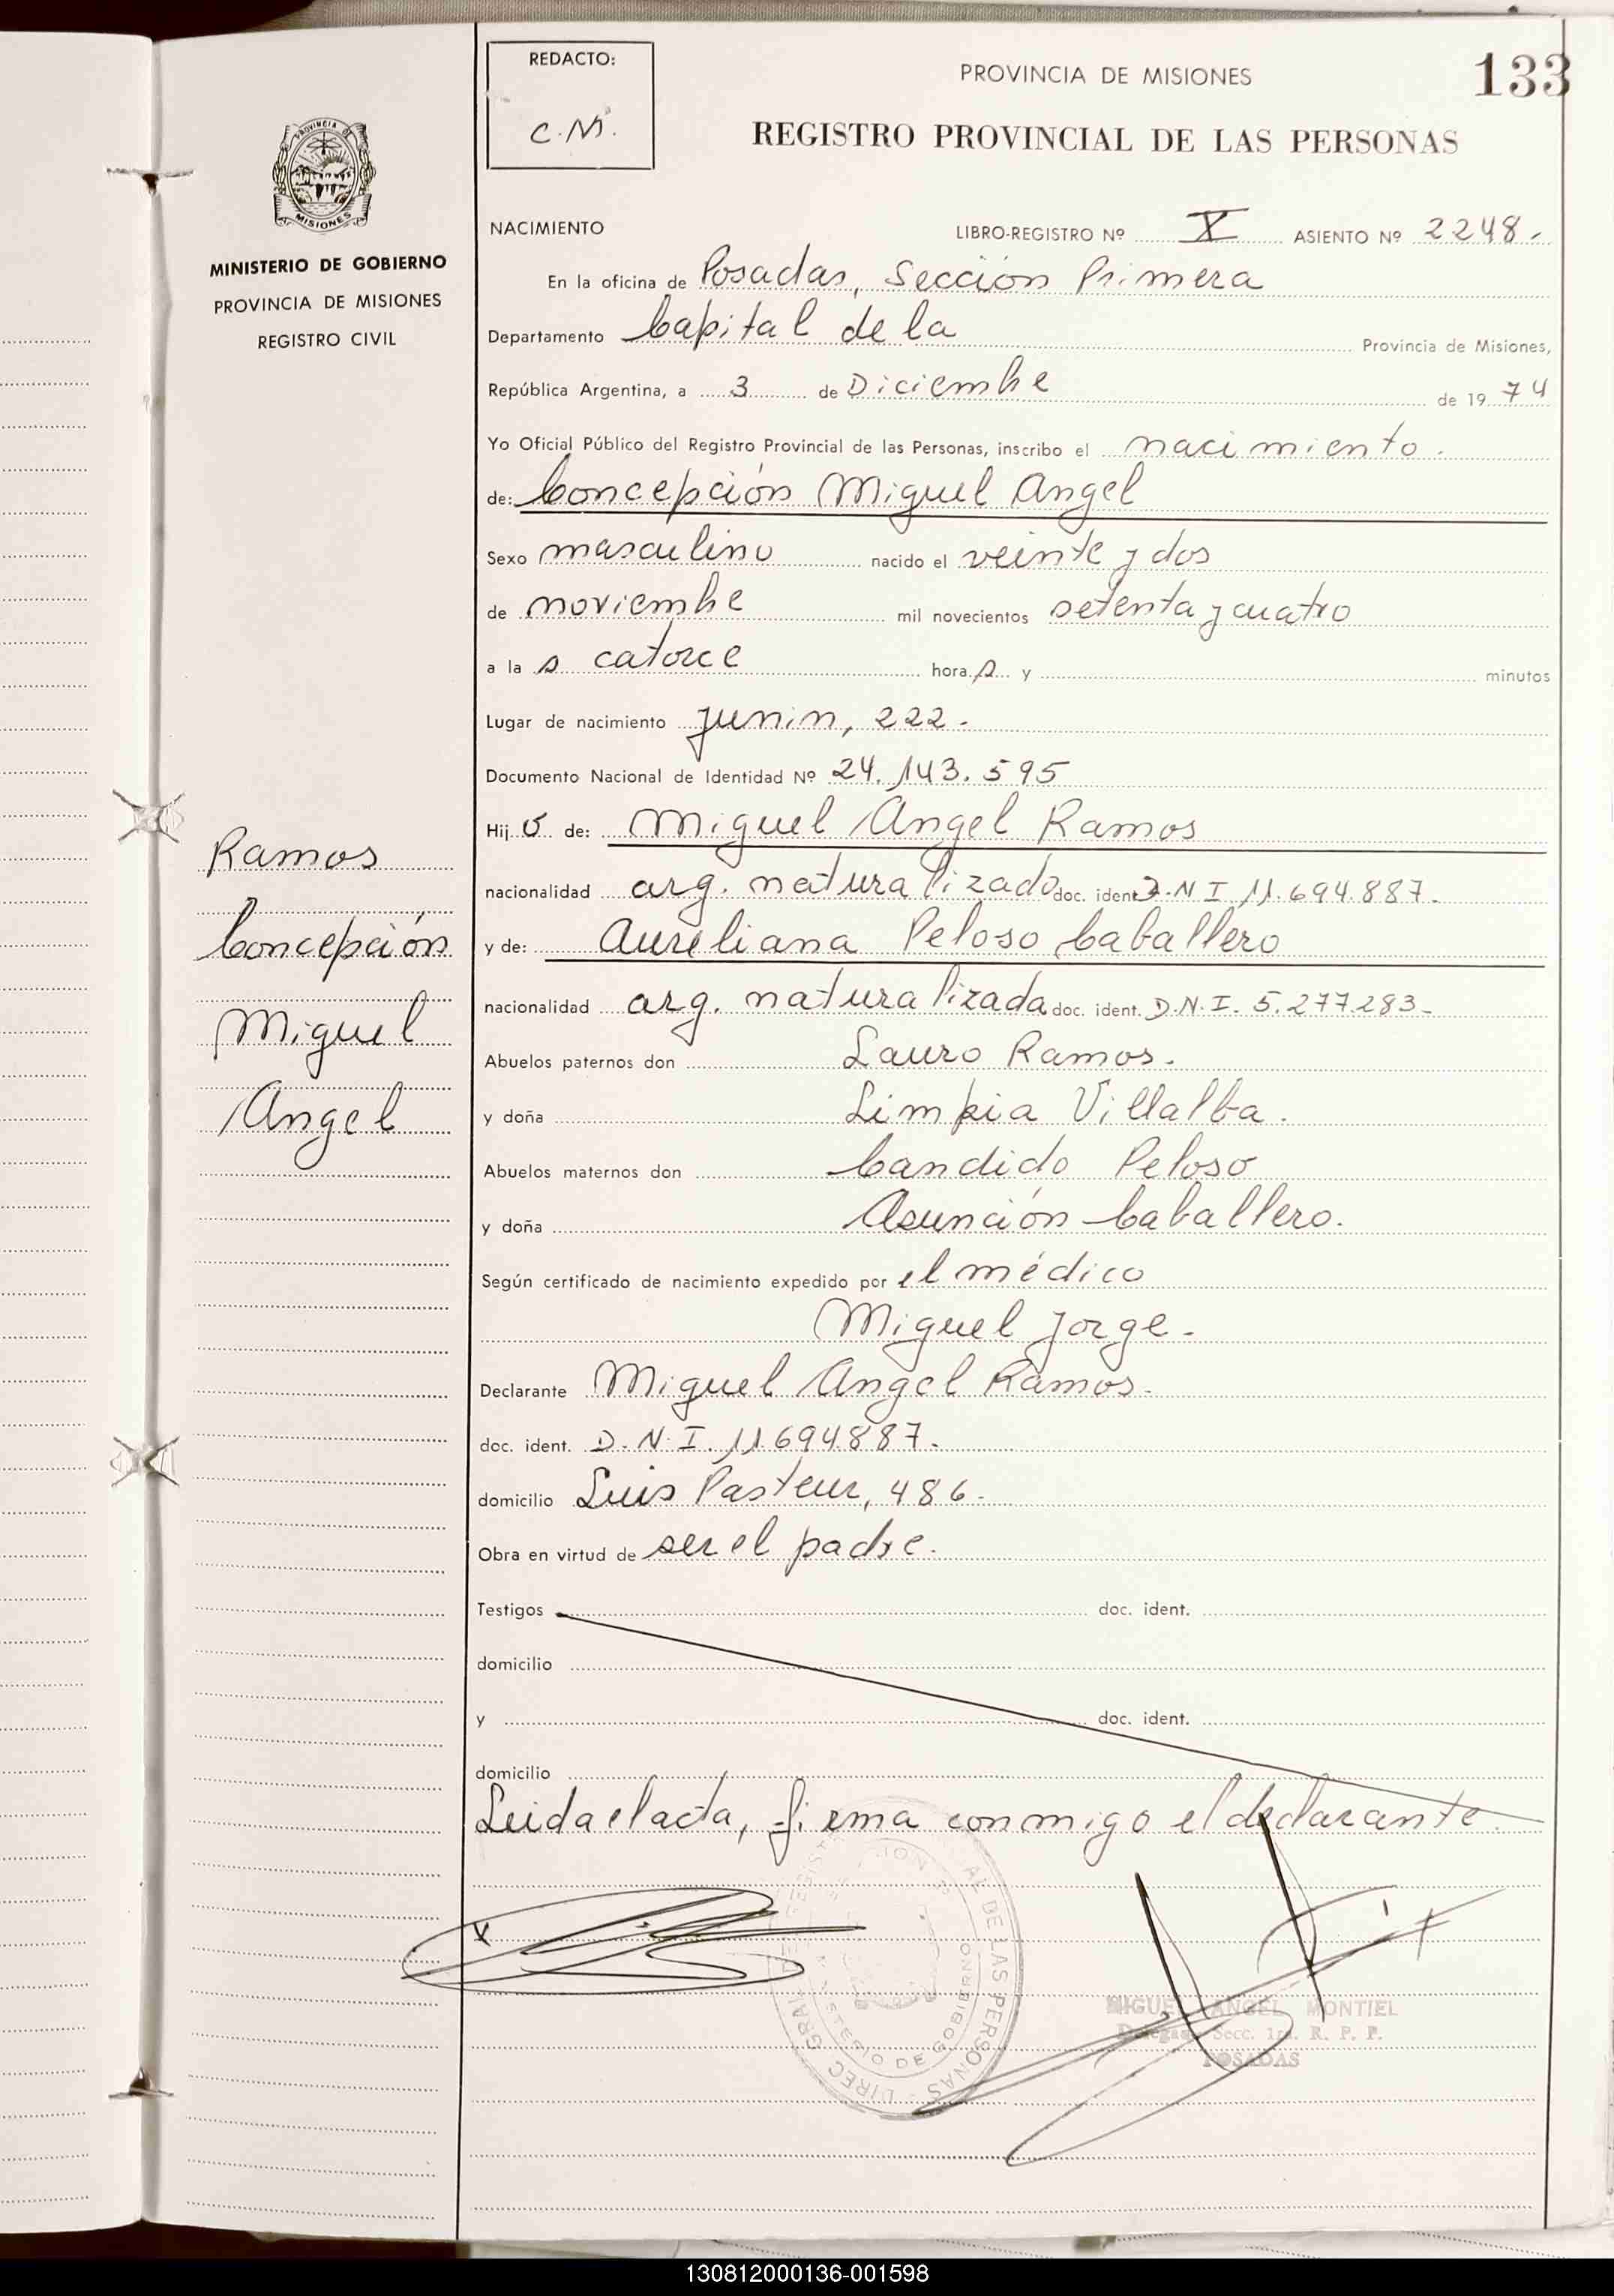 REDACTO:
C.M.
PROVINCIA DE MISIONES
133
REGISTRO PROVINCIAL DE LAS PERSONAS
PROVINCIA DE
MISIONES
MINISTERIO DE GOBIERNO
PROVINCIA DE MISIONES
REGISTRO CIVIL
NACIMIENTO LIBRO-REGISTRO Nº X ASIENTO Nº 2248.
En la oficina de Posadas, Sección Primera
Departamento Capital de la Provincia de Misiones,
República Argentina, a 3 de Diciembre de 19 74
Yo Oficial Público del Registro Provincial de las Personas, inscribo el nacimiento.
de: Concepción Miguel Angel
Sexo masculino nacido el veinte y dos
de noviembre mil novecientos setenta y cuatro
a la s catorce hora s y minutos
Lugar de nacimiento Junin, 222.
Documento Nacional de Identidad Nº 24.143.595
Hij o de: Miguel Angel Ramos
nacionalidad arg. naturalizado doc. ident. D.N I 11.694.887.
y de: Aureliana Peloso Caballero
nacionalidad arg. naturalizada doc. ident. D.N.I. 5.277.283.
Abuelos paternos don Lauro Ramos.
y doña Limpia Villalba.
Abuelos maternos don Candido Peloso
y doña Asunción Caballero.
Según certificado de nacimiento expedido por el médico
Miguel Jorge.
Declarante Miguel Angel Ramos.
doc. ident. D.N.I. 11.694.887.
domicilio Luis Pasteur, 486.
Obra en virtud de ser el padre.
Testigos doc. ident.
domicilio
y doc. ident.
domicilio
Leida el acta, firma conmigo el declarante.
Ramos
Concepción
Miguel
Angel
AL DE LAS PERSONAS
DIREC. GRAL.
MINISTERIO DE GOBIERNO
MIGUEL ANGEL MONTIEL
Delegado Secc. 1ra. R. P. P.
POSADAS
130812000136-001598